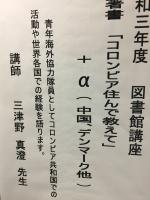 和三年度　図書館講座
著書　「コロンビア住んで教えて」
+ α（中国、デンマーク他）
青年海外協力隊員としてコロンビア共和国での
活動や世界各国での経験を語ります。
講師　三津野 真澄 先生